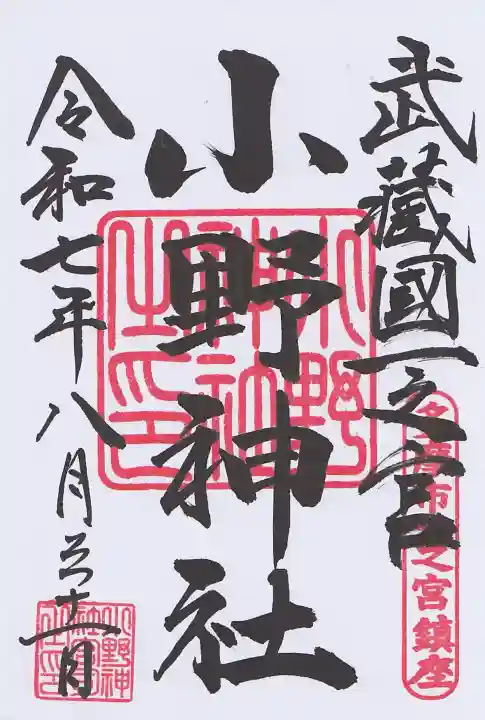 武藏國一之宮
多摩市一之宮鎮座
小野神社
小野神社之印
令和七年八月三十一日